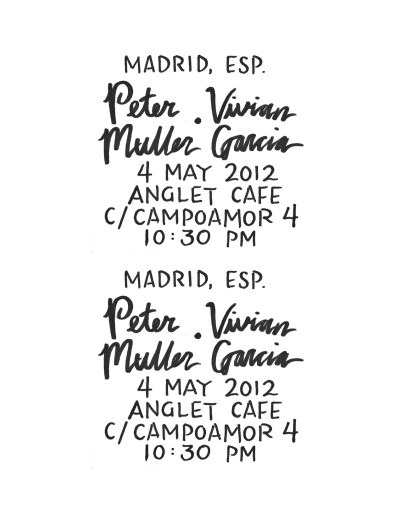 MADRID, ESP.
Peter . Vivian
Muller Garcia
4 MAY 2012
ANGLET CAFE
C/CAMPOAMOR 4
10:30 PM
MADRID, ESP.
Peter . Vivian
Muller Garcia
4 MAY 2012
ANGLET CAFE
C/CAMPOAMOR 4
10:30 PM